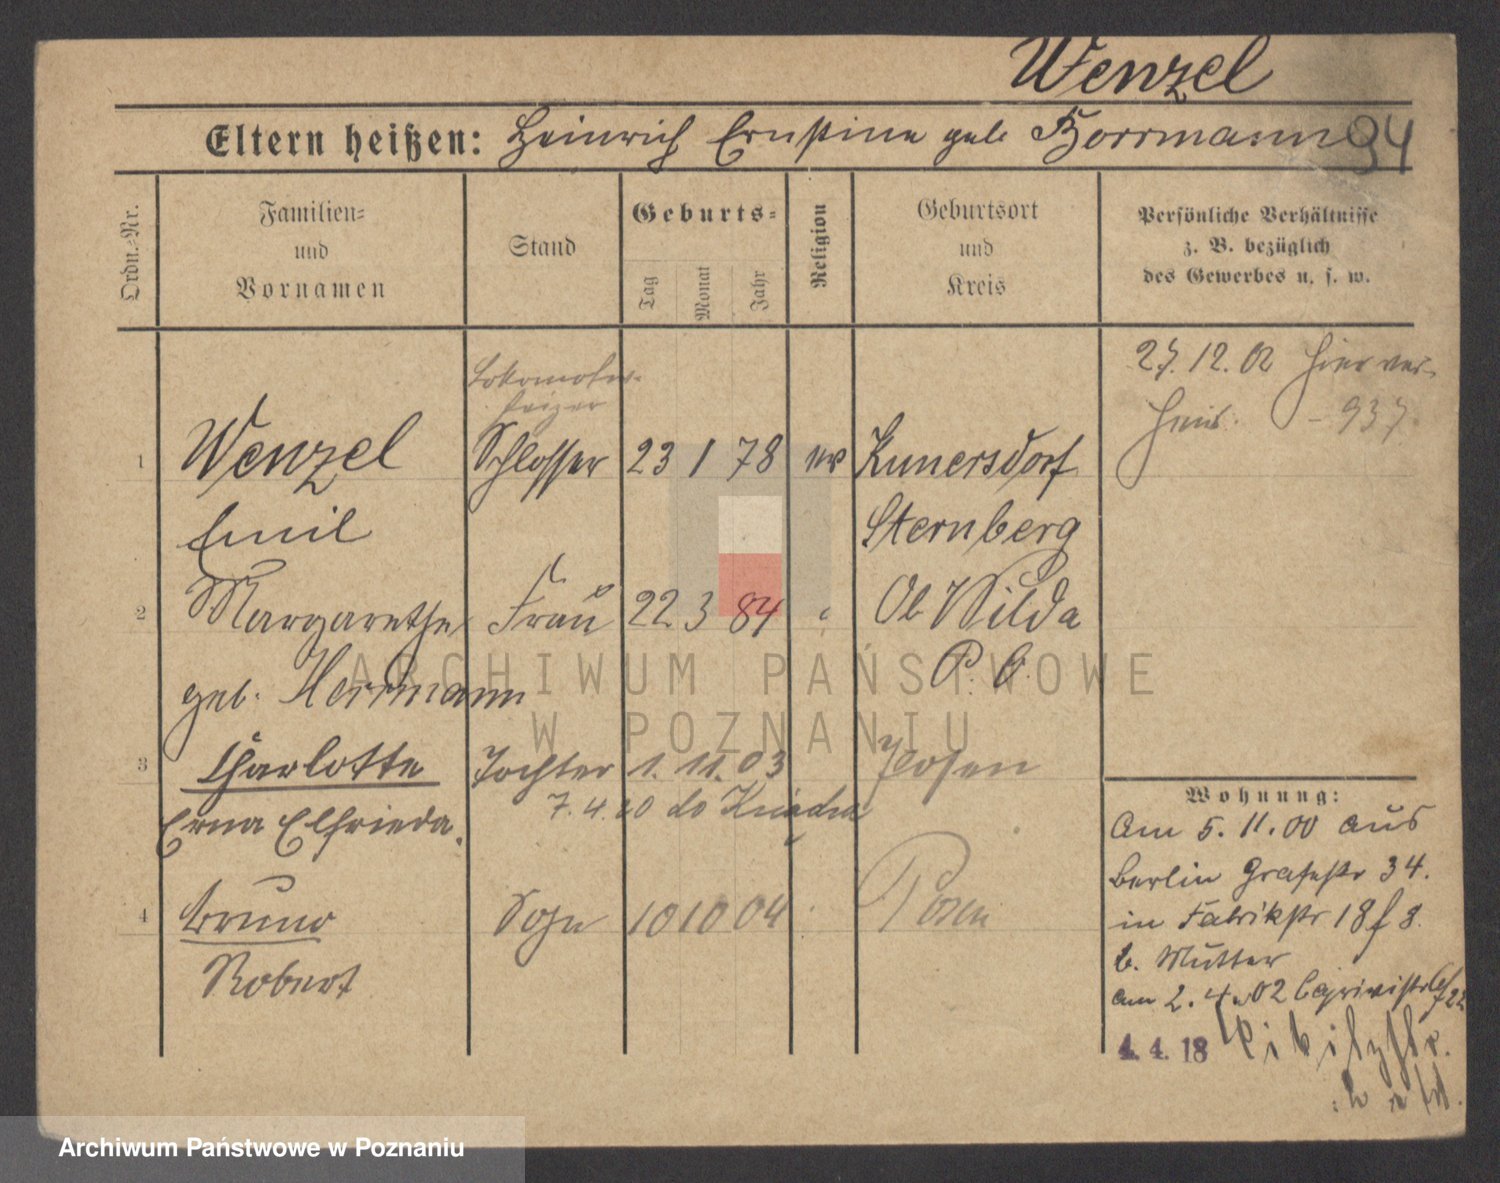 Wenzel
Eltern heißen: Heinrich Ernstine geb Borrmann 94
Ordn.-Nr.
Familien-
und
Vornamen
Stand
Geburts-
Tag
Monat
Jahr
Religion
Geburtsort
und
Kreis
Persönliche Verhältnisse
z. B. bezüglich
des Gewerbes u. s. w.
27. 12. 02 hier ver-
heir. - 937.
Lokomotiv-
heizer
1 Wenzel Schlosser 23 1 78 ev Kunersdorf
Emil Sternberg
2 Margarethe Frau 22 3 84 Ob Wilda
geb. Herrmann P. O.
3 Charlotte Tochter 1. 11. 03 Posen
7. 4. 20 do
Erna Elfrieda.
4 Bruno Sohn 10 10 04 Posen
Robert
Wohnung:
Am 5. 11. 00 aus
Berlin Grafestr 34.
in Fabrikstr 18 f 8.
b. Mutter
am 2. 4. 02 Caprivistr
4. 4. 18
ARCHIWUM PAŃSTWOWE
W POZNANIU
Archiwum Państwowe w Poznaniu